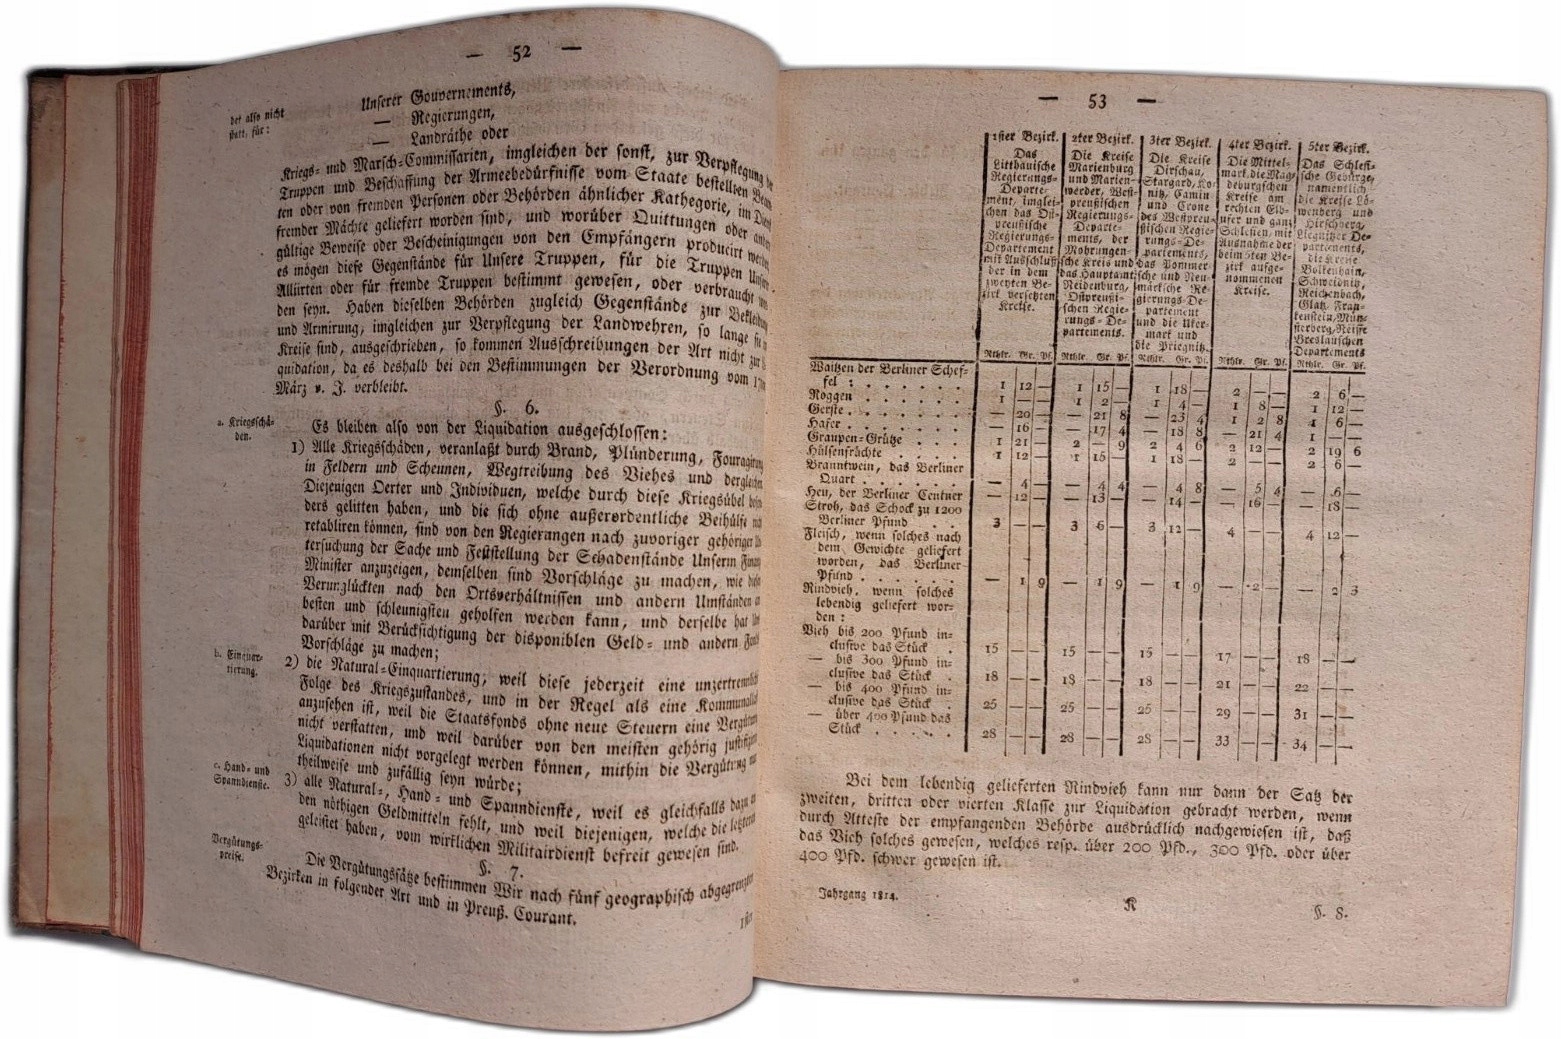 — 52 —
der also nicht
statt, für:
Unserer Gouvernements,
— Regierungen,
— Landräthe oder
Kriegs- und Marsch-Commissarien, imgleichen der sonst, zur Verpflegung
Truppen und Beschaffung der Armeebedürfnisse vom Staate bestellten
ten oder von fremden Personen oder Behörden ähnlicher Kathegorie, im
fremder Mächte geliefert worden sind, und worüber Quittungen oder
gültige Beweise oder Bescheinigungen von den Empfängern producirt
es mögen diese Gegenstände für Unsere Truppen, für die Truppen
Alliirten oder für fremde Truppen bestimmt gewesen, oder verbraucht
den seyn. Haben dieselben Behörden zugleich Gegenstände zur
und Armirung, imgleichen zur Verpflegung der Landwehren, so lange
Kreise sind, ausgeschrieben, so kommen Ausschreibungen der Art nicht zur
quidation, da es deshalb bei den Bestimmungen der Verordnung vom
März v. J. verbleibt.
§. 6.
a. Kriegsschä-
den.
Es bleiben also von der Liquidation ausgeschlossen:
1) Alle Kriegsschäden, veranlaßt durch Brand, Plünderung,
in Feldern und Scheunen, Wegtreibung des Viehes und
Diejenigen Oerter und Individuen, welche durch diese Kriegsübel
ders gelitten haben, und die sich ohne außerordentliche Beihülfe
retabliren können, sind von den Regierangen nach zuvoriger gehöriger
tersuchung der Sache und Feststellung der Schadenstände Unserm
Minister anzuzeigen, demselben sind Vorschläge zu machen, wie
Verunglückten nach den Ortsverhältnissen und andern Umständen
besten und schleunigsten geholfen werden kann, und derselbe hat
darüber mit Berücksichtigung der disponiblen Geld- und andern
Vorschläge zu machen;
b. Einquar-
tierung.
2) die Natural-Einquartierung, weil diese jederzeit eine
Folge des Kriegszustandes, und in der Regel als eine
anzusehen ist, weil die Staatsfonds ohne neue Steuern eine
nicht verstatten, und weil darüber von den meisten gehörig
Liquidationen nicht vorgelegt werden können, mithin die Vergütung
theilweise und zufällig seyn würde;
c. Hand- und
Spanndienste.
3) alle Natural-, Hand- und Spanndienste, weil es gleichfalls dazu
den nöthigen Geldmitteln fehlt, und weil diejenigen, welche die
geleistet haben, vom wirklichen Militairdienst befreit gewesen sind.
§. 7.
Vergütungs-
preise.
Die Vergütungssätze bestimmen Wir nach fünf geographisch
Bezirken in folgender Art und in Preuß. Courant.
— 53 —
1ster Bezirk. 2ter Bezirk. 3ter Bezirk. 4ter Bezirk. 5ter Bezirk.
Das Die Kreise Die Kreise Die Mittel- Das Schlesi-
Litthauische Marienburg Dirschau, mark, die Mag- sche Gebürge,
Regierungs- und Marien- Stargard, Ko- deburgschen namentlich
Departe- werder, West- nitz, Camin Kreise am die Kreise Lö-
ment, imglei- preußischen und Crone rechten Elb- wenberg und
chen das Ost- Regierungs- des Westpreu- ufer und ganz Hirschberg,
preußische Departe- ßischen Regie- Schlesien, mit Liegnitzer De-
Regierungs- ments, der rungs-De- Ausnahme der partements,
Departement Mohrungen- partements, beim 5ten Be- die Kreise
mit Ausschluß sche Kreis und das Pommer- zirk aufge- Bolkenhain,
der in dem das Hauptamt sche und Neu- nommenen Schweidnitz,
zweyten Be- Neidenburg, märksche Re- Kreise. Reichenbach,
zirk versetzten Ostpreußi- gierungs-De- Glatz, Fran-
Kreise. schen Regie- partement kenstein, Mün-
rungs-De- und die Uker- sterberg, Neisse
partements. mark und Breslauschen
die Priegnitz. Departements
Rthlr. Gr. Pf. Rthlr. Gr. Pf. Rthlr. Gr. Pf. Rthlr. Gr. Pf. Rthlr. Gr. Pf.
Waitzen der Berliner Schef-
fel : . . . . . . 1 12 — 1 15 — 1 18 — 2 — — 2 6 —
Roggen . . . . . . 1 — — 1 2 — 1 4 — 1 8 — 1 12 —
Gerste . . . . . . — 20 — — 21 8 — 23 4 1 2 8 1 6 —
Hafer . . . . . . — 16 — — 17 4 — 18 8 — 21 4 1 — —
Graupen-Grütze . . . 1 21 — 2 — 9 2 4 6 2 12 — 2 19 6
Hülsenfrüchte . . . . 1 12 — 1 15 — 1 18 — 2 — — 2 6 —
Branntwein, das Berliner
Quart . . . . . . — 4 — — 4 4 — 4 8 — 5 4 — 6 —
Heu, der Berliner Centner — 12 — — 13 — — 14 — — 16 — — 18 —
Stroh, das Schock zu 1200
Berliner Pfund . . 3 — — 3 6 — 3 12 — 4 — — 4 12 —
Fleisch, wenn solches nach
dem Gewichte geliefert
worden, das Berliner
Pfund . . . . . . — 1 9 — 1 9 — 1 9 — 2 — — 2 3
Rindvieh, wenn solches
lebendig geliefert wor-
den :
Vieh bis 200 Pfund in-
clusive das Stück . 15 — — 15 — — 15 — — 17 — — 18 — —
— bis 300 Pfund in-
clusive das Stück . 18 — — 18 — — 18 — — 21 — — 22 — —
— bis 400 Pfund in-
clusive das Stück . 25 — — 25 — — 25 — — 29 — — 31 — —
— über 400 Pfund das
Stück . . . . . 28 — — 28 — — 28 — — 33 — — 34 — —
Bei dem lebendig gelieferten Rindvieh kann nur dann der Satz der
zweiten, dritten oder vierten Klasse zur Liquidation gebracht werden, wenn
durch Atteste der empfangenden Behörde ausdrücklich nachgewiesen ist, daß
das Vieh solches gewesen, welches resp. über 200 Pfd., 300 Pfd. oder über
400 Pfd. schwer gewesen ist.
Jahrgang 1814.
K
§. 8.